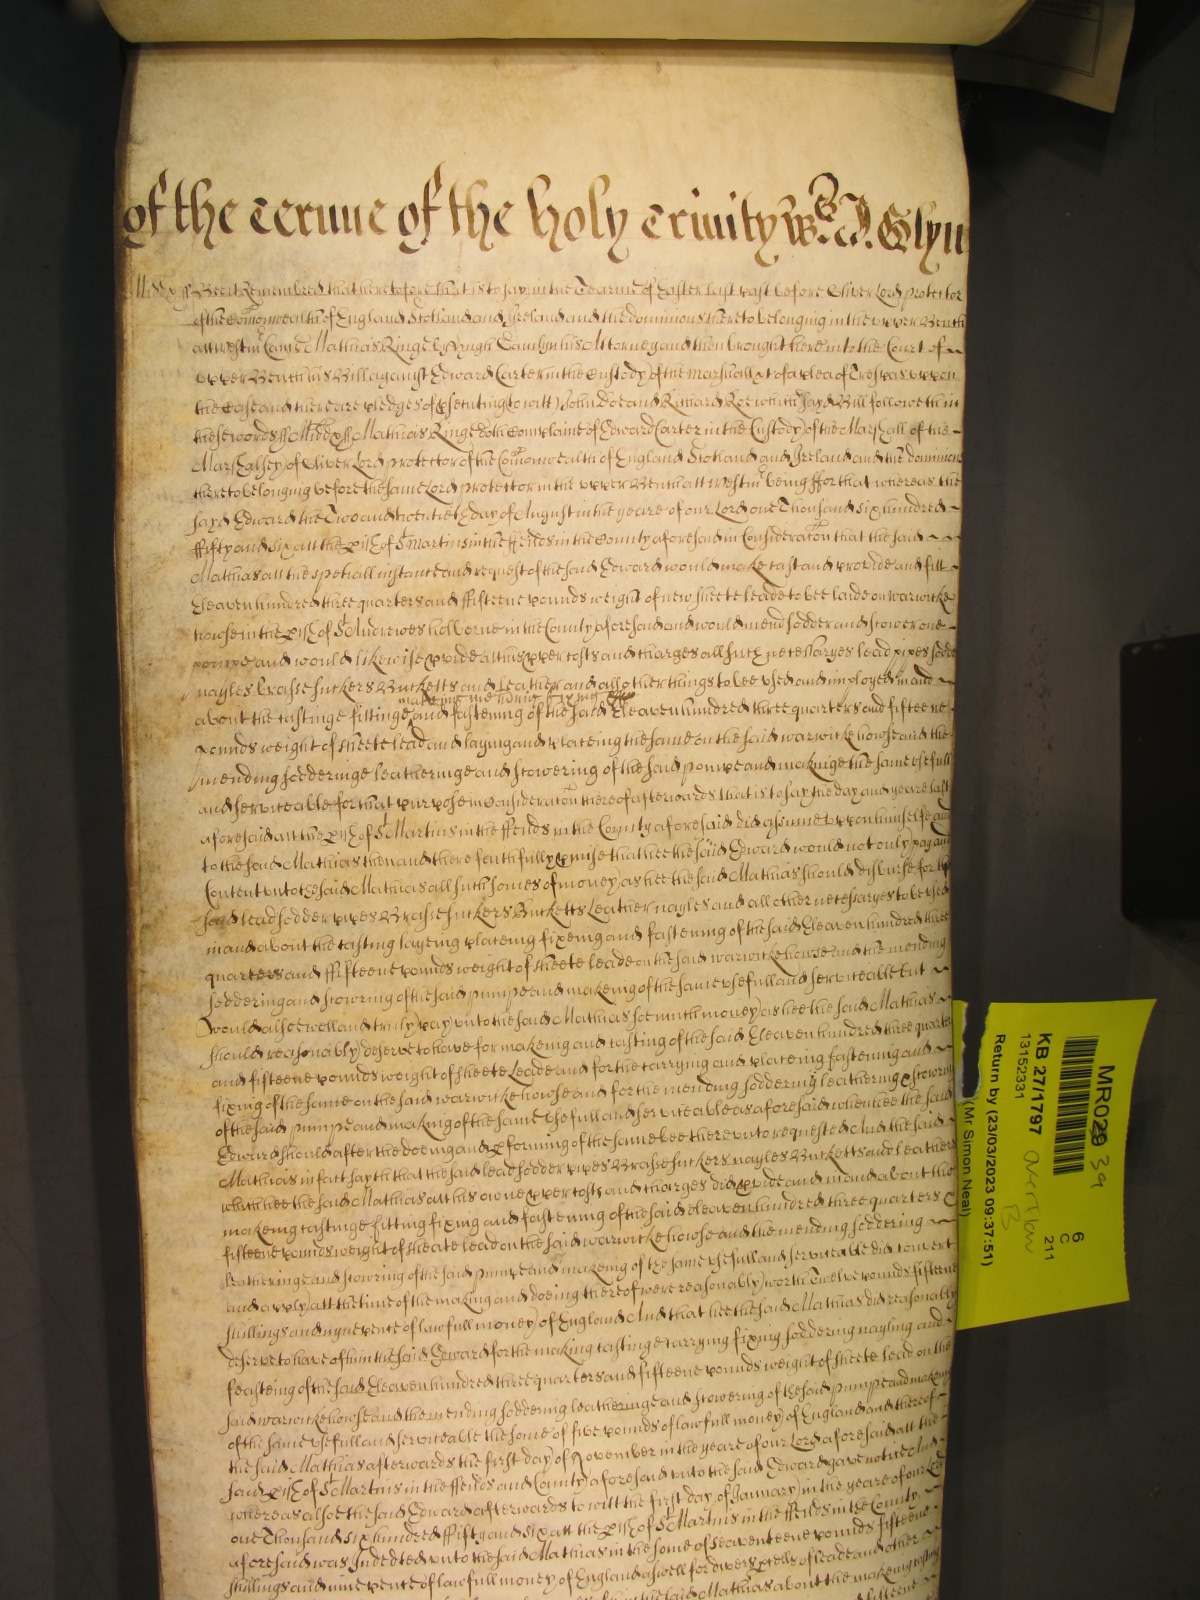 of the terme of the holy Trinity Wes. J. Glyn
Midd'x ss Bee it Remembred that heretofore that is to say in the Tearme of Easter last past before Oliver Lord protector
of the Comonwealth of England Scotland and Ireland and the dominions thereto belonging in the upper Bench
att Westm Came Mathias Ringe by Hugh his Attorney and then brought here into the Court of
upper Bench his Bill against Edward Carter in the Custody of the Marshall &c of a plea of Trespas uppon
the Case and there are pledges of psecuting (to witt) John Doe and Richard Roe which sayd Bill followeth in
these words ss Midd'x ss Mathias Ringe doth Complaine of Edward Carter in the Custody of the Marshall of the
Marshalsey of Oliver Lord protector of the Comonwealth of England Scotland and Ireland and the dominions
thereto belonging before the same Lord protector in the upper Bench att Westm being ffor that whereas the
sayd Edward the Two and twentieth day of August in the yeare of our Lord one Thousand six hundred
ffifty and six att the pish of St Martins in the ffeilds in the County aforesaid in Consideracon that the said
Mathias att the speciall instance and request of the said Edward would make cast and provide and fitt
Eleaven hundred three quarters and ffifteene pounds weight of new sheete leade to bee laide on Warwicke
howse in the pish of St Andrewes holborne in the County aforesaid and would mend sodder and scower one
pompe and would likewise pvide att his pper costs and charges all such necessaryes lead pipes sodder
nayles brasse suckers Bucketts and Leather and all other things to bee used and imployed in and
making mending fixing
about the castinge fittinge and fastening of the said Eleaven hundred three quarters and fifteene
pounds weight of sheete lead and laying and placeing the same on the said Warwicke howse and the
mending sodderinge leatheringe and scowering of the said pompe and makinge the same usefull
and serviceable for that purpose in Consideracon thereof afterwards that is to say the day and yeare last
aforesaid att the pish of St Martins in the ffeilds in the County aforesaid did assume uppon himselfe and
to the said Mathias then and there faithfully pmise that hee the said Edward would not only pay and
Content unto the said Mathias all such somes of money as hee the said Mathias should disburse for the
said lead sodder pipes Brasse suckers Bucketts Leather nayles and all other necessaryes to be used
in and about the casting layeing placeing fixeing and fastening of the said Eleaven hundred three
quarters and ffifteene pounds weight of sheete leade on the said Warwicke howse and the mending
soddering and scowring of the said pumpe and makeing of the same usefull and serviceable but
would alsoe well and truly pay unto the said Mathias soe much money as hee the said Mathias
should reasonably deserve to have for makeing and casting of the said Eleaven hundred three quarters
and fifteene pounds weight of sheete Leade and for the carrying and placeing fastening and
fixing of the same on the said Warwicke howse and for the mending soddering leathering & scowring
of the said pumpe and making of the same usefull and serviceable as aforesaid when hee the said
Edward should after the doeing and pforming of the same bee thereunto requested And the said
Mathias in fact sayth that the said lead sodder pipes Brasse suckers nayles Bucketts and leathers
which hee the said Mathias att his owne pper costs and charges did pvide and in and about the
makeing castinge fitting fixing and fastening of the said eleaven hundred three quarters &
fifteene pounds weight of sheate lead on the said Warwicke howse and the mending soddering
leatheringe and scowring of the said pumpe and makeing of the same usefull and serviceable did convert
and apply att the time of the making and doeing thereof were reasonably worth Twelve pounds fifteene
shillings and nyne pence of lawfull money of England And that hee the said Mathias did reasonably
deserve to have of him the said Edward for the making castinge carrying fixing soddering nayling and
feasteing of the said Eleaven hundred three quarters and fifteene pounds weight of sheete lead on the
said Warwicke howse and the mending soddering leatheringe and scowering of the said pumpe and makeing
of the same usefull and serviceable the some of five pounds of lawfull money of England and thereof
the said Mathias afterwards the first day of November in the yeare of our Lord aforesaid att the
said pish of St Martins in the ffeilds and County aforesaid unto the said Edward gave notice And
whereas alsoe the said Edward afterwards to witt the first day of January in the yeare of our Lord
one Thousand six hundred ffifty and six att the pish of St Martins in the ffeilds in the County
aforesaid was Indebted unto the said Mathias in the some of seaventeene pounds fifteene
shillings and nine pence of lawfull money of England aswell for divers pcells of leade and other
the said Mathias about the makeing casting
fifteene
MR029 39
6
C
211
KB 27/1797
13152331
overflow
B
Return by (23/03/2023 09:37:51)
(Mr Simon Neal)